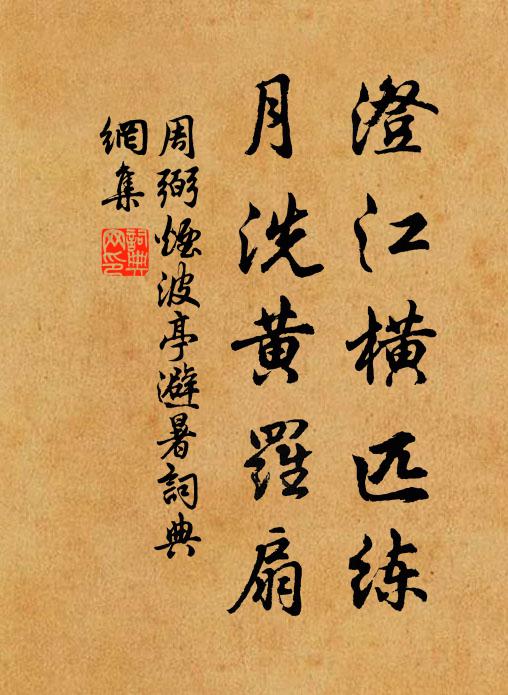 澄江横匹练
月洗黄羅扇
周弼烟波亭避暑詞典
網集
詞典網印